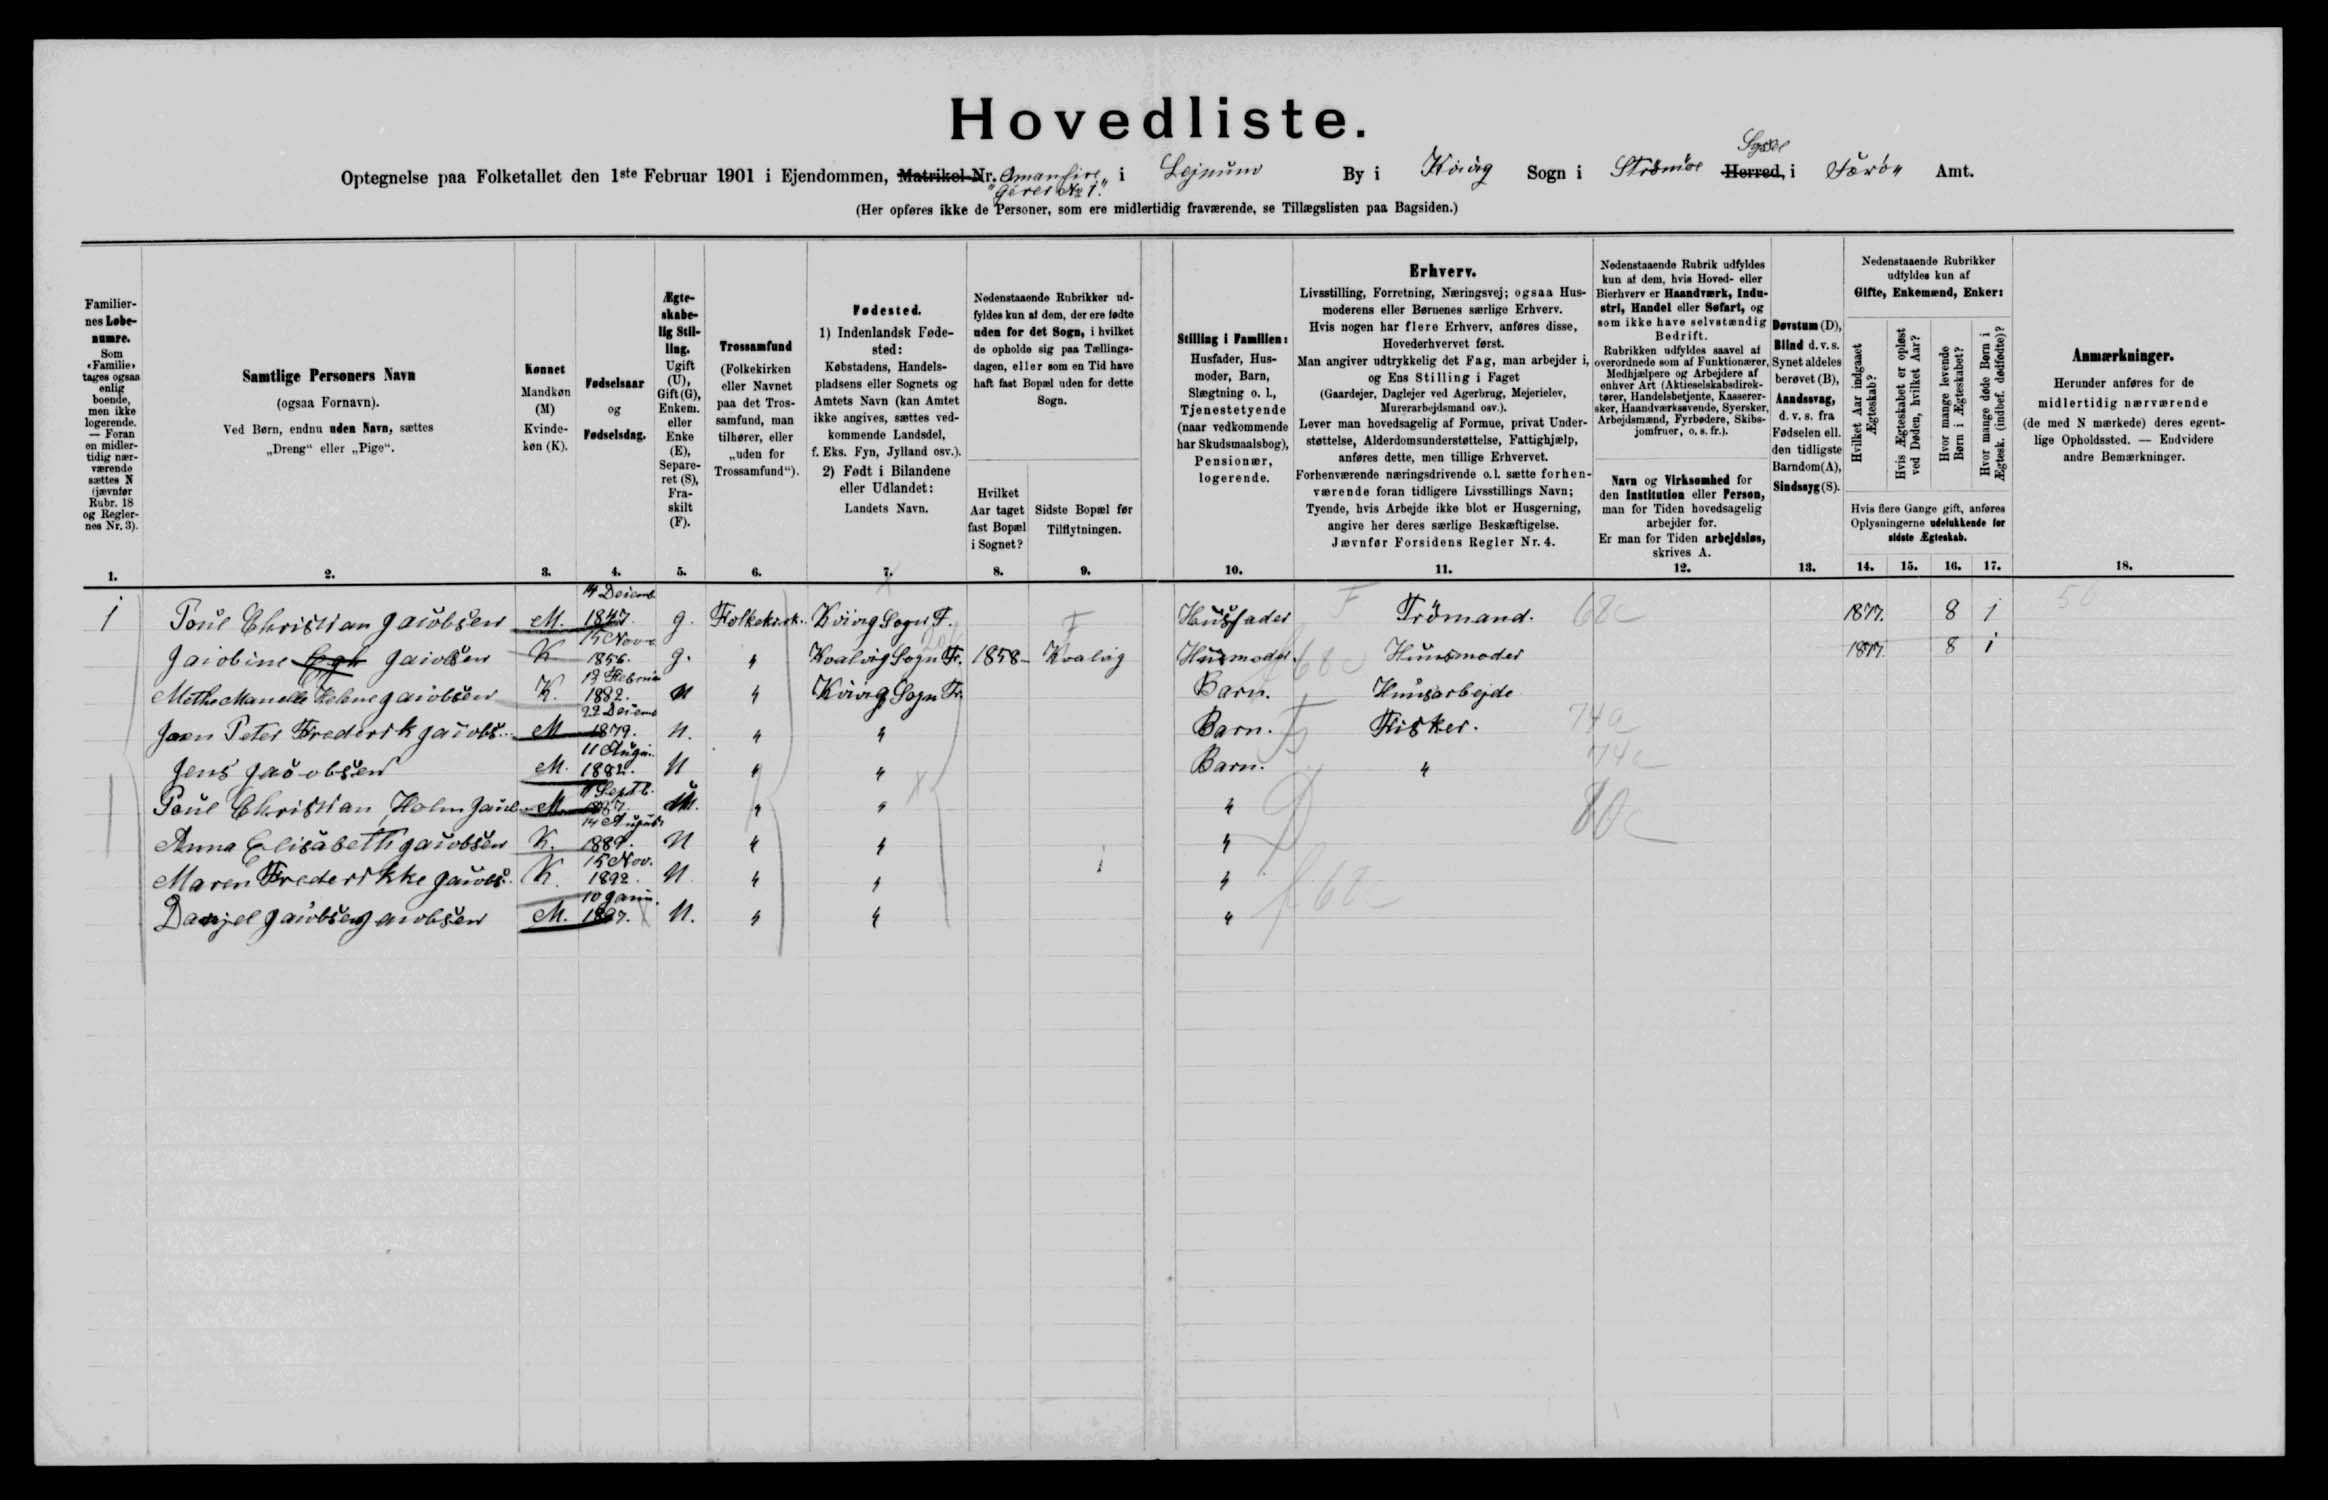 Hovedliste.
Syssel
Optegnelse paa Folketallet den 1ste Februar 1901 i Ejendommen, Matrikel-Nr. i Lejnum By i Kvivig Sogn i Strømøe Herred, i Færøe Amt.
No 1."
(Her opføres ikke de Personer, som ere midlertidig fraværende, se Tillægslisten paa Bagsiden.)
Familiernes Løbenumre.
Som «Familie» tages ogsaa enlig boende, men ikke logerende. — Foran en midlertidig nærværende sættes N (jævnfør Rubr. 18 og Reglernes Nr. 3).
Samtlige Personers Navn
(ogsaa Fornavn).
Ved Børn, endnu uden Navn, sættes „Dreng“ eller „Pige“.
Kønnet
Mandkøn (M) Kvindekøn (K).
Fødselsaar og Fødselsdag.
Ægteskabelig Stilling.
Ugift (U), Gift (G), Enkem. eller Enke (E), Separeret (S), Fraskilt (F).
Trossamfund
(Folkekirken eller Navnet paa det Trossamfund, man tilhører, eller „uden for Trossamfund“).
Fødested.
1) Indenlandsk Fødested:
Købstadens, Handelspladsens eller Sognets og Amtets Navn (kan Amtet ikke angives, sættes vedkommende Landsdel, f. Eks. Fyn, Jylland osv.).
2) Født i Bilandene eller Udlandet:
Landets Navn.
Nedenstaaende Rubrikker udfyldes kun af dem, der ere fødte uden for det Sogn, i hvilket de opholde sig paa Tællingsdagen, eller som en Tid have haft fast Bopæl uden for dette Sogn.
Hvilket Aar taget fast Bopæl i Sognet?
Sidste Bopæl før Tilflytningen.
Stilling i Familien:
Husfader, Husmoder, Barn, Slægtning o. l., Tjenestetyende (naar vedkommende har Skudsmaalsbog), Pensionær, logerende.
Erhverv.
Livsstilling, Forretning, Næringsvej; ogsaa Husmoderens eller Børnenes særlige Erhverv.
Hvis nogen har flere Erhverv, anføres disse, Hovederhvervet først.
Man angiver udtrykkelig det Fag, man arbejder i, og Ens Stilling i Faget
(Gaardejer, Daglejer ved Agerbrug, Mejerielev, Murerarbejdsmand osv.).
Lever man hovedsagelig af Formue, privat Understøttelse, Alderdomsunderstøttelse, Fattighjælp, anføres dette, men tillige Erhvervet.
Forhenværende næringsdrivende o.l. sætte forhenværende foran tidligere Livsstillings Navn; Tyende, hvis Arbejde ikke blot er Husgerning, angive her deres særlige Beskæftigelse.
Jævnfør Forsidens Regler Nr. 4.
Nedenstaaende Rubrik udfyldes kun af dem, hvis Hoved- eller Bierhverv er Haandværk, Industri, Handel eller Søfart, og som ikke have selvstændig Bedrift.
Rubrikken udfyldes saavel af overordnede som af Funktionærer, Medhjælpere og Arbejdere af enhver Art (Aktieselskabsdirektører, Handelsbetjente, Kassererersker, Haandværkssvende, Syersker, Arbejdsmænd, Fyrbødere, Skibsjomfruer, o. s. fr.).
Navn og Virksomhed for den Institution eller Person, man for Tiden hovedsagelig arbejder for.
Er man for Tiden arbejdsløs, skrives A.
Døvstum (D), Blind d. v. s. Synet aldeles berøvet (B), Aandssvag, d. v. s. fra Fødselen ell. den tidligste Barndom (A), Sindssyg (S).
Nedenstaaende Rubrikker udfyldes kun af Gifte, Enkemænd, Enker:
Hvilket Aar indgaaet Ægteskab?
Hvis Ægteskabet er opløst ved Døden, hvilket Aar?
Hvor mange levende Børn i Ægteskabet?
Hvor mange døde Børn i Ægtesk. (indbef. dødfødte)?
Hvis flere Gange gift, anføres Oplysningerne udelukkende for sidste Ægteskab.
Anmærkninger.
Herunder anføres for de midlertidig nærværende (de med N mærkede) deres egentlige Opholdssted. — Endvidere andre Bemærkninger.
1. 2. 3. 4. 5. 6. 7. 8. 9. 10. 11. 12. 13. 14. 15. 16. 17. 18.
1 Poul Christian Jacobsen M. 14 Decemb 1847. g. Folkekirk. Kvivig Sogn F. Husfader Trömand. 68c 1877. 8 1
Jacobine Jacobsen K 15 Nov 1856. g. " Kvalvig Sogn Fr. 1858 Kvalvig Husmoder. Huusmoder 1877. 8 1
Helene Jacobsen K. 1882. U " Kvivig Sogn Fr. Barn. Huusarbejde
Joen Peter Frederik Jacobs. M 22 Decemb 1879. U. " " Barn. Fisker. 74a
Jens Jacobsen M. 11 Augu. 1882. U " " Barn. " 74a
Poul Christian Holm Jacob. M. Septb. 1887. U. " " " 80c
Anna Elisabeth Jacobsen K. 14 August 1889. U " " "
Maren Frederikke Jacobs. K. 15 Nov. 1892. U " " "
Danjel Jacobsen Jacobsen M. 10 Janu. 1897. U. " " "